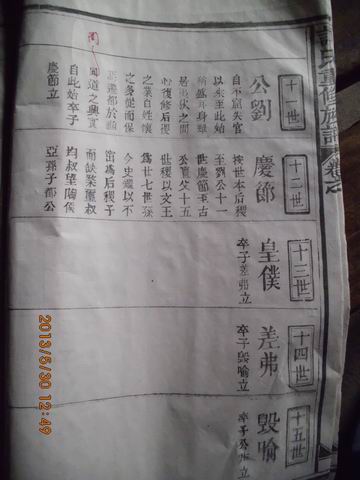 氏重修族譜 卷之
十一世
公劉
自不窋失官
以來至此始
稍盛年身雖
居戎狄之間
心復修后稷
之業百姓懷
之多從而保
焉遷都於豳
周道之興實
自此始卒子
慶節立
周
十二世
慶節
按世本后稷
至劉公十一
世慶節至古
公亶父十五
世稷以文王
為廿七世孫
今史鑑以不
窋為后稷子
而缺漦璽叔
均叔望隋侯
亞孫子都公
十三世
皇僕
卒子差弗立
十四世
差弗
卒子毀喻立
十五世
毀喻
卒子公非立
2013/5/30 12:49